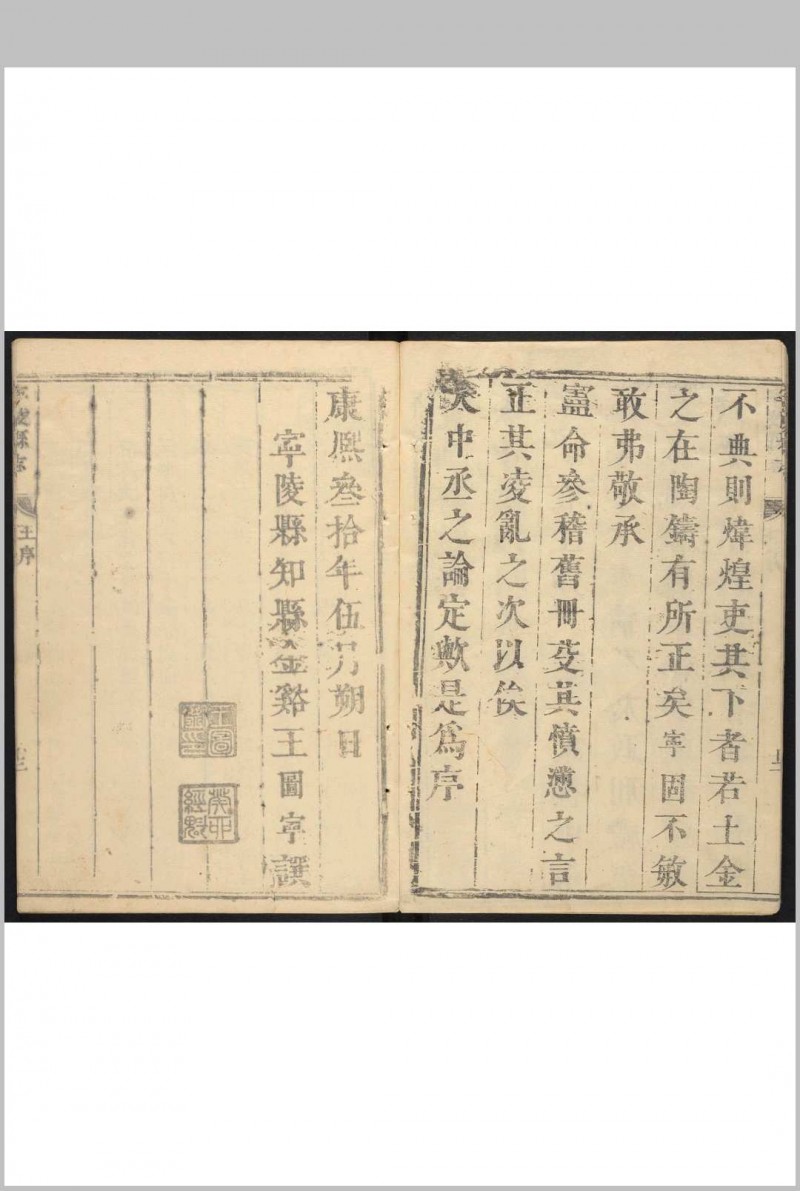 不典則煒煌吏其下者若土金
之在陶鑄有所正矣寧固不敏
敢弗敬承
憲命參稽舊冊芟其憤懣之言
正其凌亂之次以俟
大中丞之論定歟是為序
康熙叁拾年伍月朔日
寧陵縣知縣金谿王圖寧譔
王圖寧印
癸卯經魁
寧陵縣志
王序